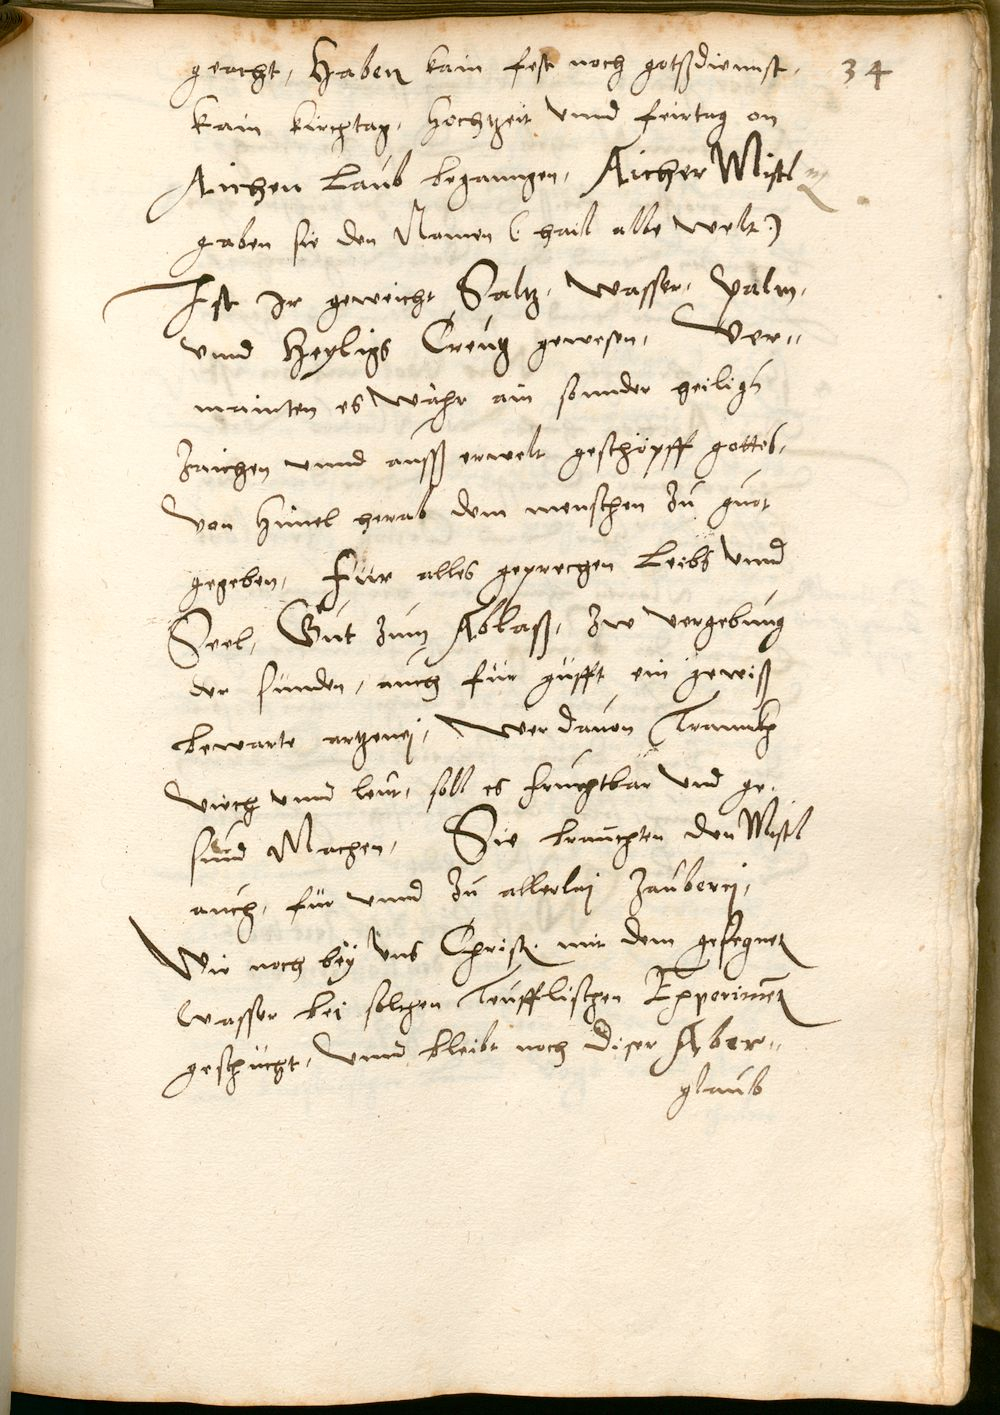 geacht, Haben kain fest noch gotßdiennst, 34
kain kirchtag, hochtzeit vnnd feirtag on
Aichen Laub beganngen, Aicher Mistl
gaben sie den Namen (: hail alle welt :)
Ist Ir geweicht Saltz, Wasser, Palm,
vnnd Heyligs Creutz gewesen, Ver-
mainten es Wahr ain sonnder heiligs
Zaichen vnnd ausß erwelt geschöpff gottes,
von Himel herab dem menschen zu guot
gegeben, Für alles geprechen Leibs vnnd
Seel, Gut zum Ablaß, zw vergebung
der sunden, auch für gufft ein gewiß
bewarte artzenei, Wer dauon Trannckh
viech vnnd leut, soll es fruchtbar vnd ge-
sund Machen, Sie brauchten den Mistl
auch, für vnnd zu allerlaj zauberej,
Wie noch bey vns Christn mit dem gesegneten
wasser bei solchen Teufflischen Experimenten
geschicht, Vnnd bleibt noch diser Aber-
glaub